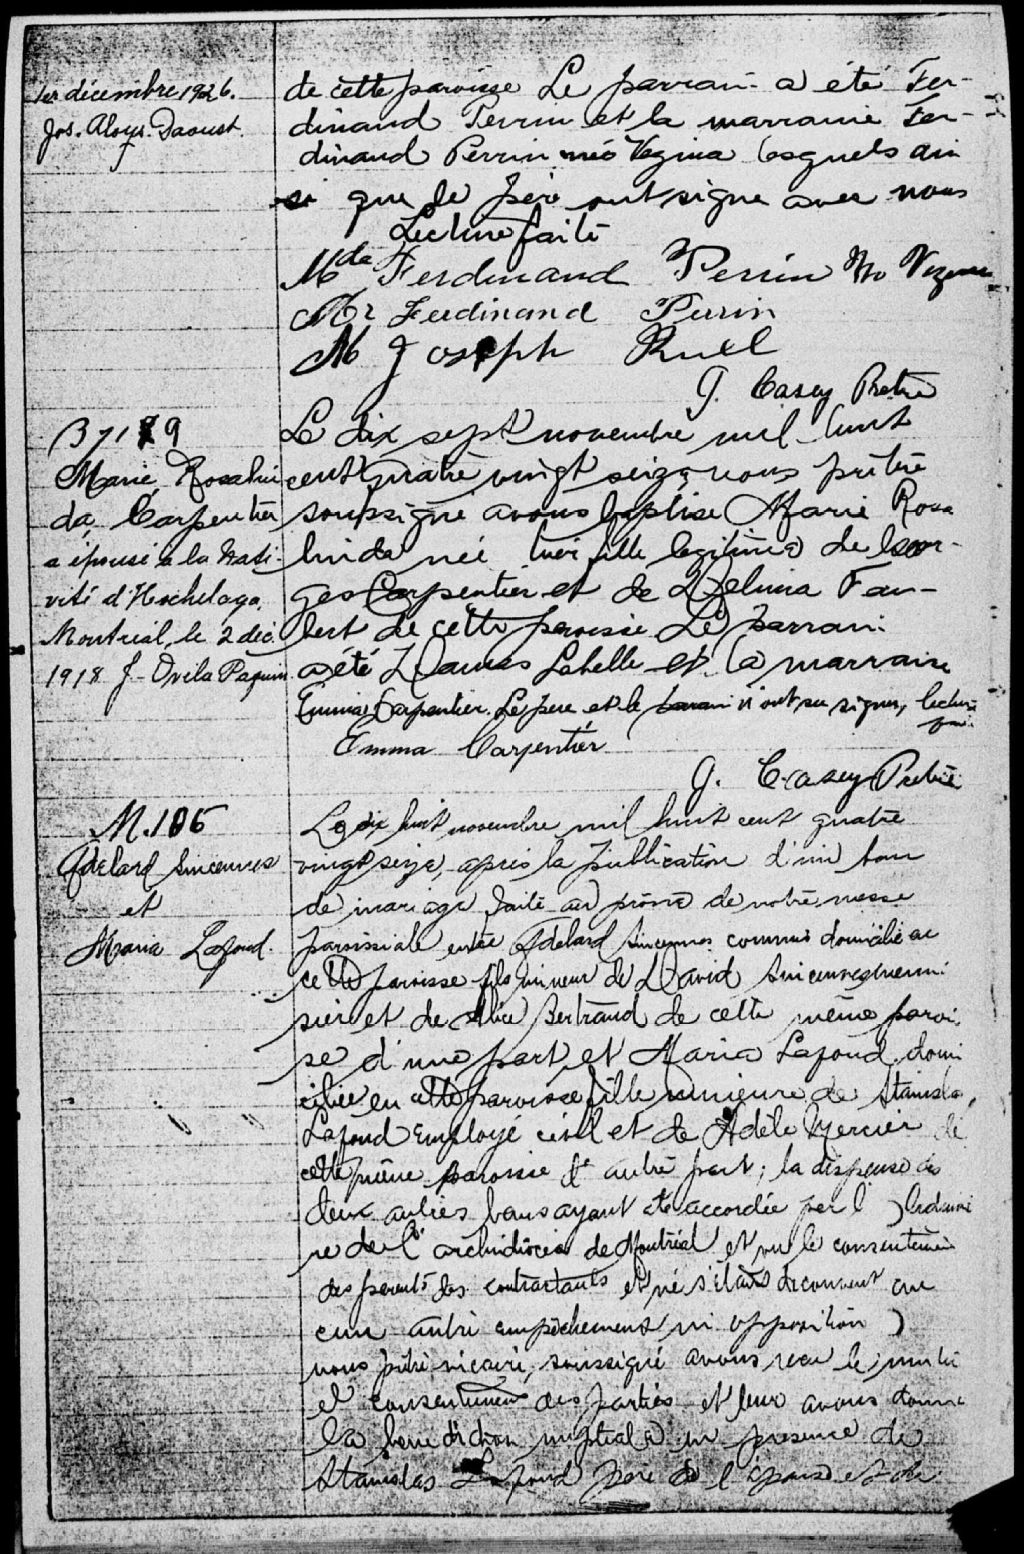 1er décembre 1926.
Jos. Aloys. Daoust
de cette paroisse Le parrain a été Fer-
dinand Perrin et la marraine Fer-
dinand Perrin née Vezina lesquels ain
si que le père ont signé avec nous
Lecture faite
Mde Ferdinand Perrin
Mr Ferdinand Perrin
M Joseph Ruel
G. Casey Ptre
B 7189
Marie Rosalin
da Carpentier
a épousé à la Nati-
vité d'Hochelaga,
Montréal, le 2 déc.
1918 J-Ovila Paquin
Le dix sept novembre mil huit
cent quatre vingt seize nous prêtre
soussigné avons baptisé Marie Rosa
linda née hier fille légitime de Geor-
ges Carpentier et de Delima Fau-
bert de cette paroisse Le parrain
a été Damas Labelle et la marraine
Emma Carpentier. Le père et le parrain n'ont su signer, lecture
faite
Emma Carpentier
G. Casey Ptre
M. 106
Adelard Sincennes
et
Maria Lafond.
Le dix huit novembre mil huit cent quatre
vingt seize, après la publication d'un ban
de mariage faite au prône de notre messe
paroissiale entre Adelard Sincennes commis domicilié en
cette paroisse fils mineur de David Sincennes menui
sier et de Alice Bertrand de cette même parois
se d'une part et Maria Lafond domi
ciliée en cette paroisse fille mineure de Stanislas
Lafond Employé civil et de Adèle Mercier de
cette même paroisse d'autre part; la dispense des
deux autres bans ayant été accordée par l'
re de l'archidiocèse de Montréal et vu le consentement
des parents des contractants et ne s'étant découvert au
cun autre empêchement ni opposition )
nous prêtre vicaire, soussigné avons reçu le mutu
el consentement des parties et leur avons donné
la bénédiction nuptiale en présence de
Stanislas Lafond père de l'épouse et de